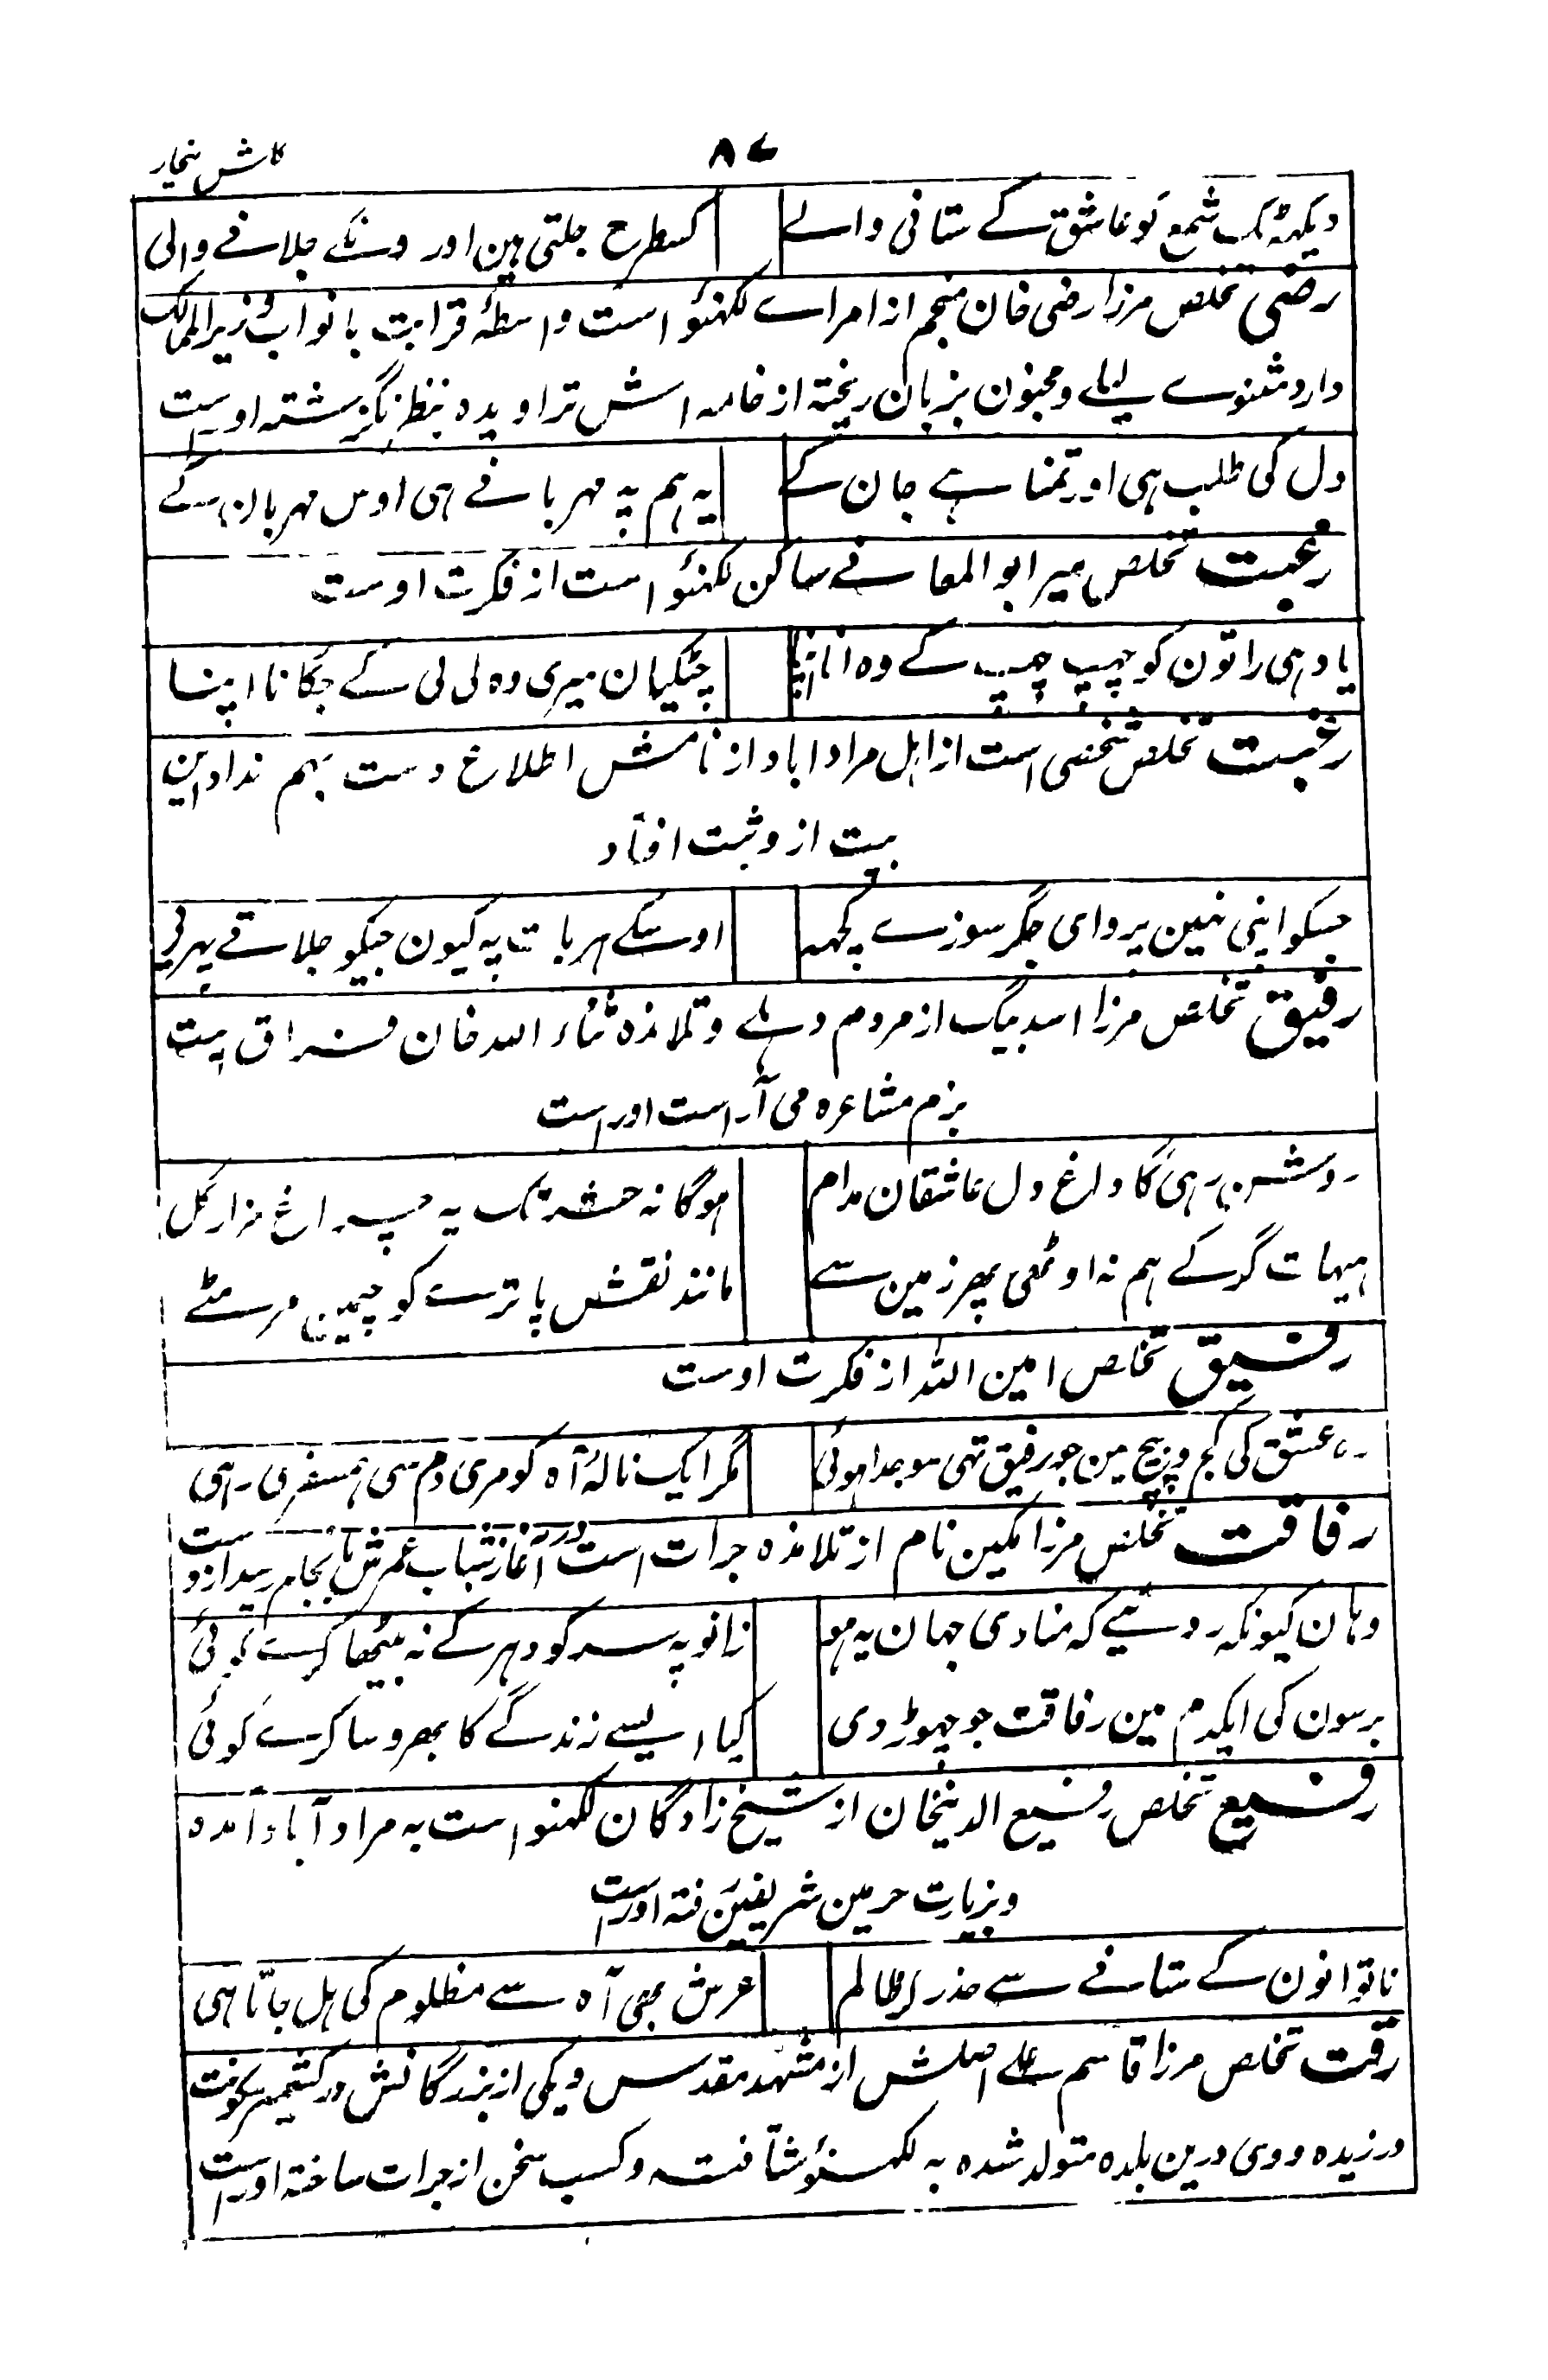 ۸۷
گلشن بیخار
دیکهه ٹک شمع کو عاشق کے ستانی والے کسطرح جلتی ہین اور ونکے جلانے والی
رضی تخلص مرزا رضی خان منجم از امراے لکهنؤ است واسطۂ قرابت با نواب وزیر الممالک
دارد مثنوے لیلے و مجنون بزبان ریخته از خامه اش تراویده بنظر نگزشته اوراست
دل کی طلب ہی اور تمنا ہے جان کے یہ ہم پہ مہربانے ہی اوس مہربان کے
رغبت تخلص میر ابو المعانے ساکن لکهنؤ است از فکرت اوست
یاد ہی راتون کو چهپ چهپ کے وہ انا اپنا چٹکیان میری وہ لی لی کے جگانا اپنا
رغبت تخلص شخصی است از اہل مراداباد از نامش اطلاع دست بہم نداد این
بیت ازو ثبت افتاد
جسکو اپنی نہین پروای جگر سوزے کچهه اوسکے ہر بات پہ کیون جیکو جلاتے پہرئے
رفیق تخلص مرزا اسد بیگ از مردم دہلے و تلامذہ ثناء اللہ خان فراق است
بزم مشاعره می آراست اوراست
روشن رہی گا داغ دل عاشقان مدام ہوگا نہ حشر تک یہ چراغ مزار گل
ہیہات گر کے ہم نہ اوٹھی پھر زمین سے مانند نقش پا ترے کوچہین مر مٹے
رفیق تخلص امین اللہ از فکرت اوست
رہ عشق کی کج و پیچ مین جو رفیق تہی سو جدا ہوئی مگر ایک نالۂ آہ کو مری دم سی ہمسفری رہی
رفاقت تخلص مرزا مکین نام از تلامذه جرات است در آغاز شباب عمرش بانجام رسید ازوست
وہان کیونکہ روئیے کہ منادی جہان یہ ہو زانو پہ سر کو دہر کے نہ بیٹھا کرے کوئی
برسون کی ایکدم مین رفاقت جو چہوڑ دی کیا ایسے زندگے کا بھروسا کرے کوئی
رفیع تخلص رفیع الدینخان از شیخ زادگان لکهنو است به مراد آباد آمده
و بزیارت حرمین شریفین رفته اوراست
ناتوانون کے ستانے سے حذر کر ظالم عرش بھی آہ سے مظلوم کی ہل جاتا ہی
رقت تخلص مرزا قاسم علے اصلش از مشهد مقدس و یکی از بزرگانش در کشمیر سکونت
ورزیده و وی درین بلده متولد شده به لکهنؤ شتافته و کسب سخن از جرات ساخته اوراست